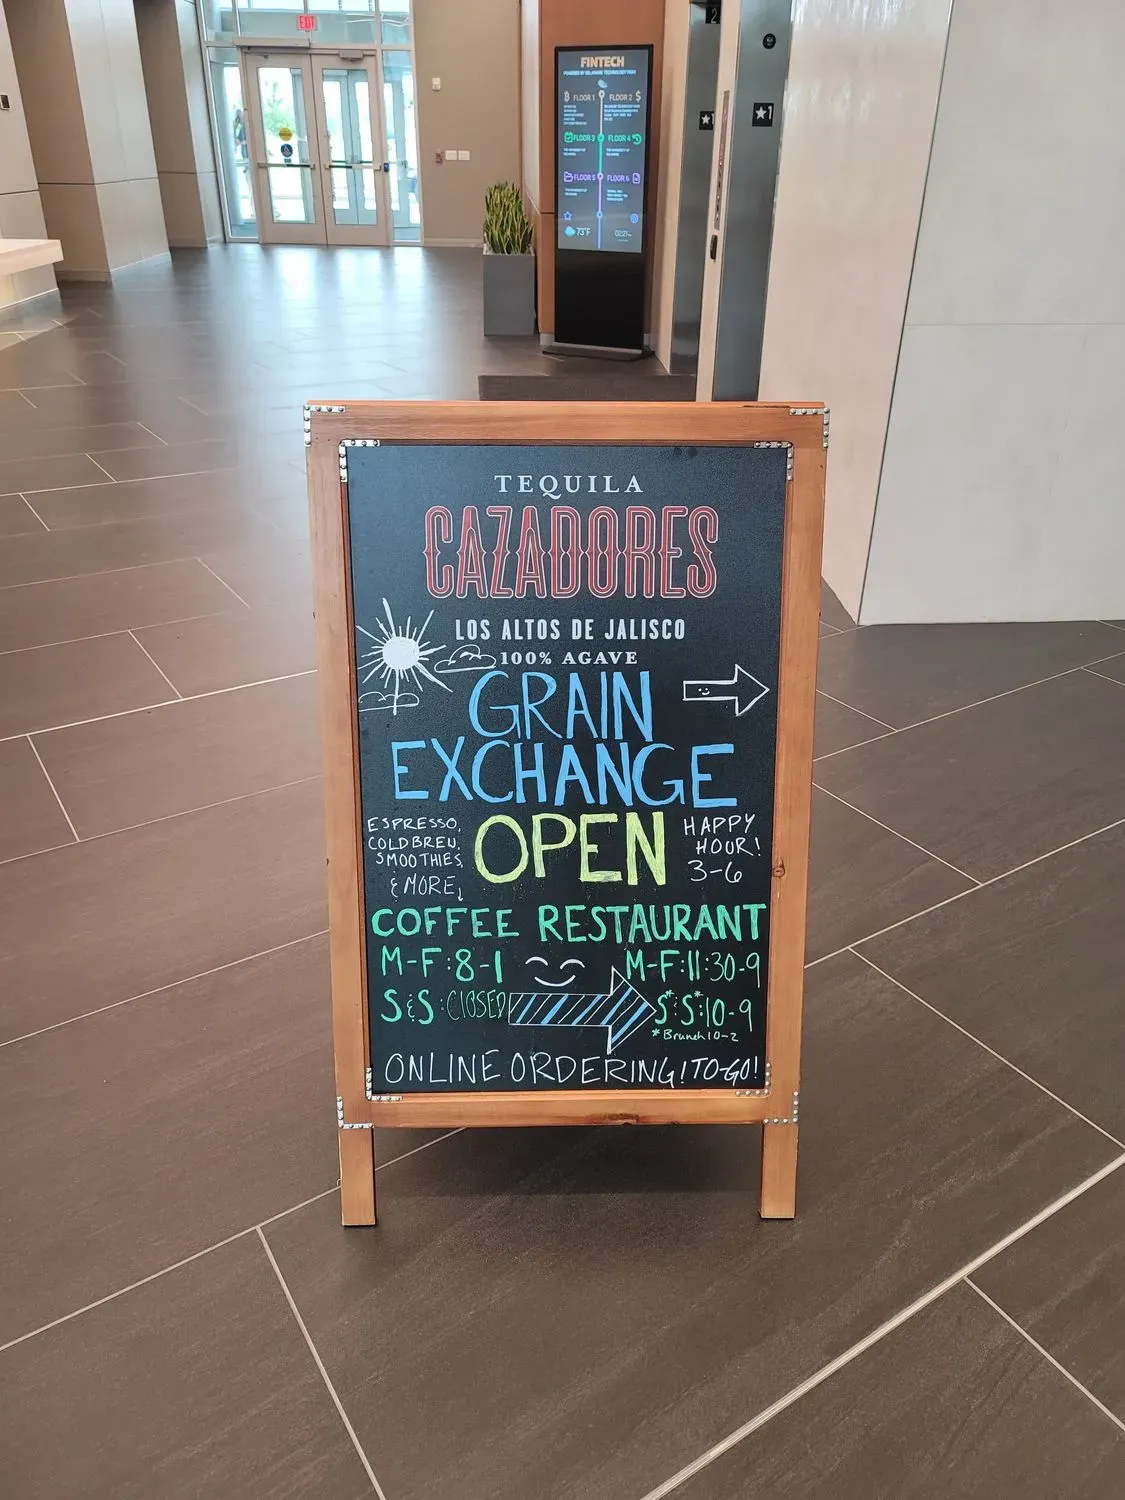 EXIT
2
FINTECH
POWERED BY DELAWARE TECHNOLOGY PARK
FLOOR 1 FLOOR 2
FLOOR 3 FLOOR 4
FLOOR 5 FLOOR 6
73°F 02:21
★1
★1
TEQUILA
CAZADORES
LOS ALTOS DE JALISCO
100% AGAVE
GRAIN
EXCHANGE
OPEN
ESPRESSO,
COLDBREW,
SMOOTHIES,
& MORE
HAPPY
HOUR!
3-6
COFFEE RESTAURANT
M-F:8-1 M-F:11:30-9
S&S:CLOSED S*:S*:10-9
*Brunch 10-2
ONLINE ORDERING! TO-GO!